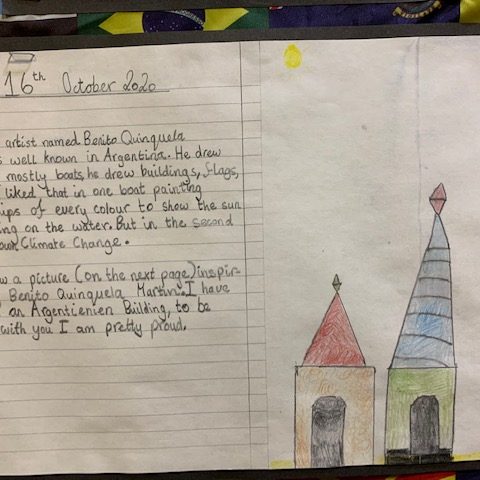 16th October 2020
artist named Benito Quinquela
s well known in Argentina. He drew
mostly boats, he drew buildings, flags,
liked that in one boat painting
ups of every colour to show the sun
ing on the water. But in the second
Climate Change.
w a picture (on the next page) inspir-
Benito Quinquela Martin. I have
an Argentienien Building, to be
with you I am pretty proud.